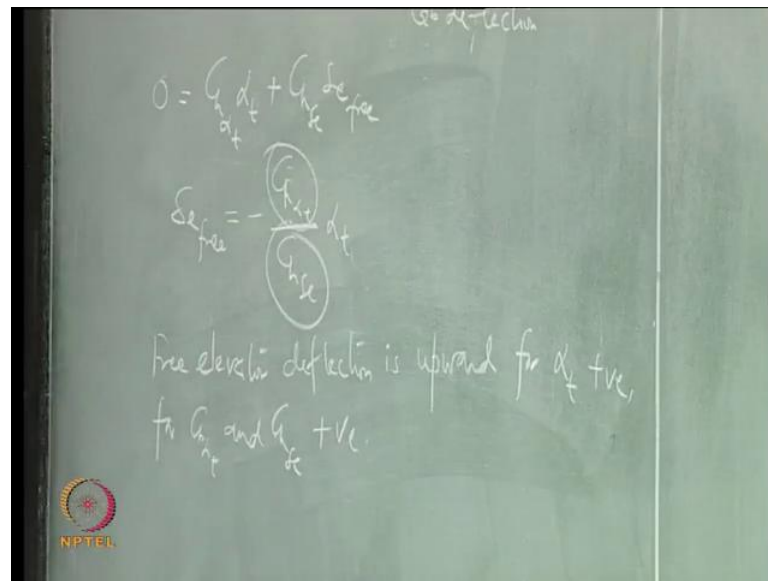 e = deflection
0 = C_{h_{α_t}} α_t + C_{h_{δe}} δe_{free}
δe_{free} = - \frac{C_{h_{α_t}}}{C_{h_{δe}}} α_t
Free elevator deflection is upward for α_t +ve,
for C_{h_{α_t}} and C_{h_{δe}} +ve.
NPTEL